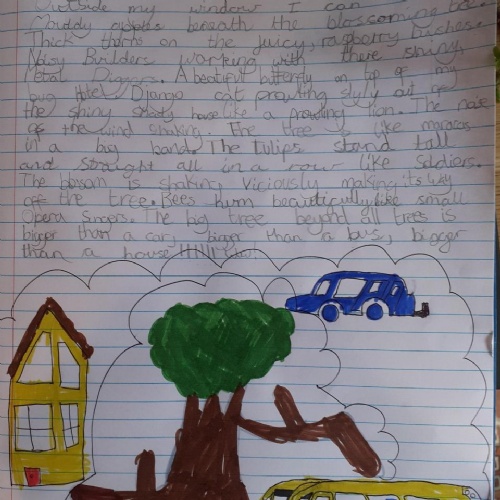 Outside my window I can
Muddy puddles beneath the blossoming
Thick thorns on the juicy, raspberry bushes.
Noisy Builders working with there shiny,
Metal Diggers. A beatiful butterfly on top of my
bug Hotel Django cat prowling slyly out of
the shiny shady house like a prowling lion. The
of the wind shaking. The tree is like maracas
in a big band. The tulips stand tall
and straight all in a row like soldiers.
The blossom is shaking viciously making its way
off the tree. Bees hum like small
Opera singers. The big tree beyond all trees is
bigger than a car, bigger than a bus, bigger
than a house